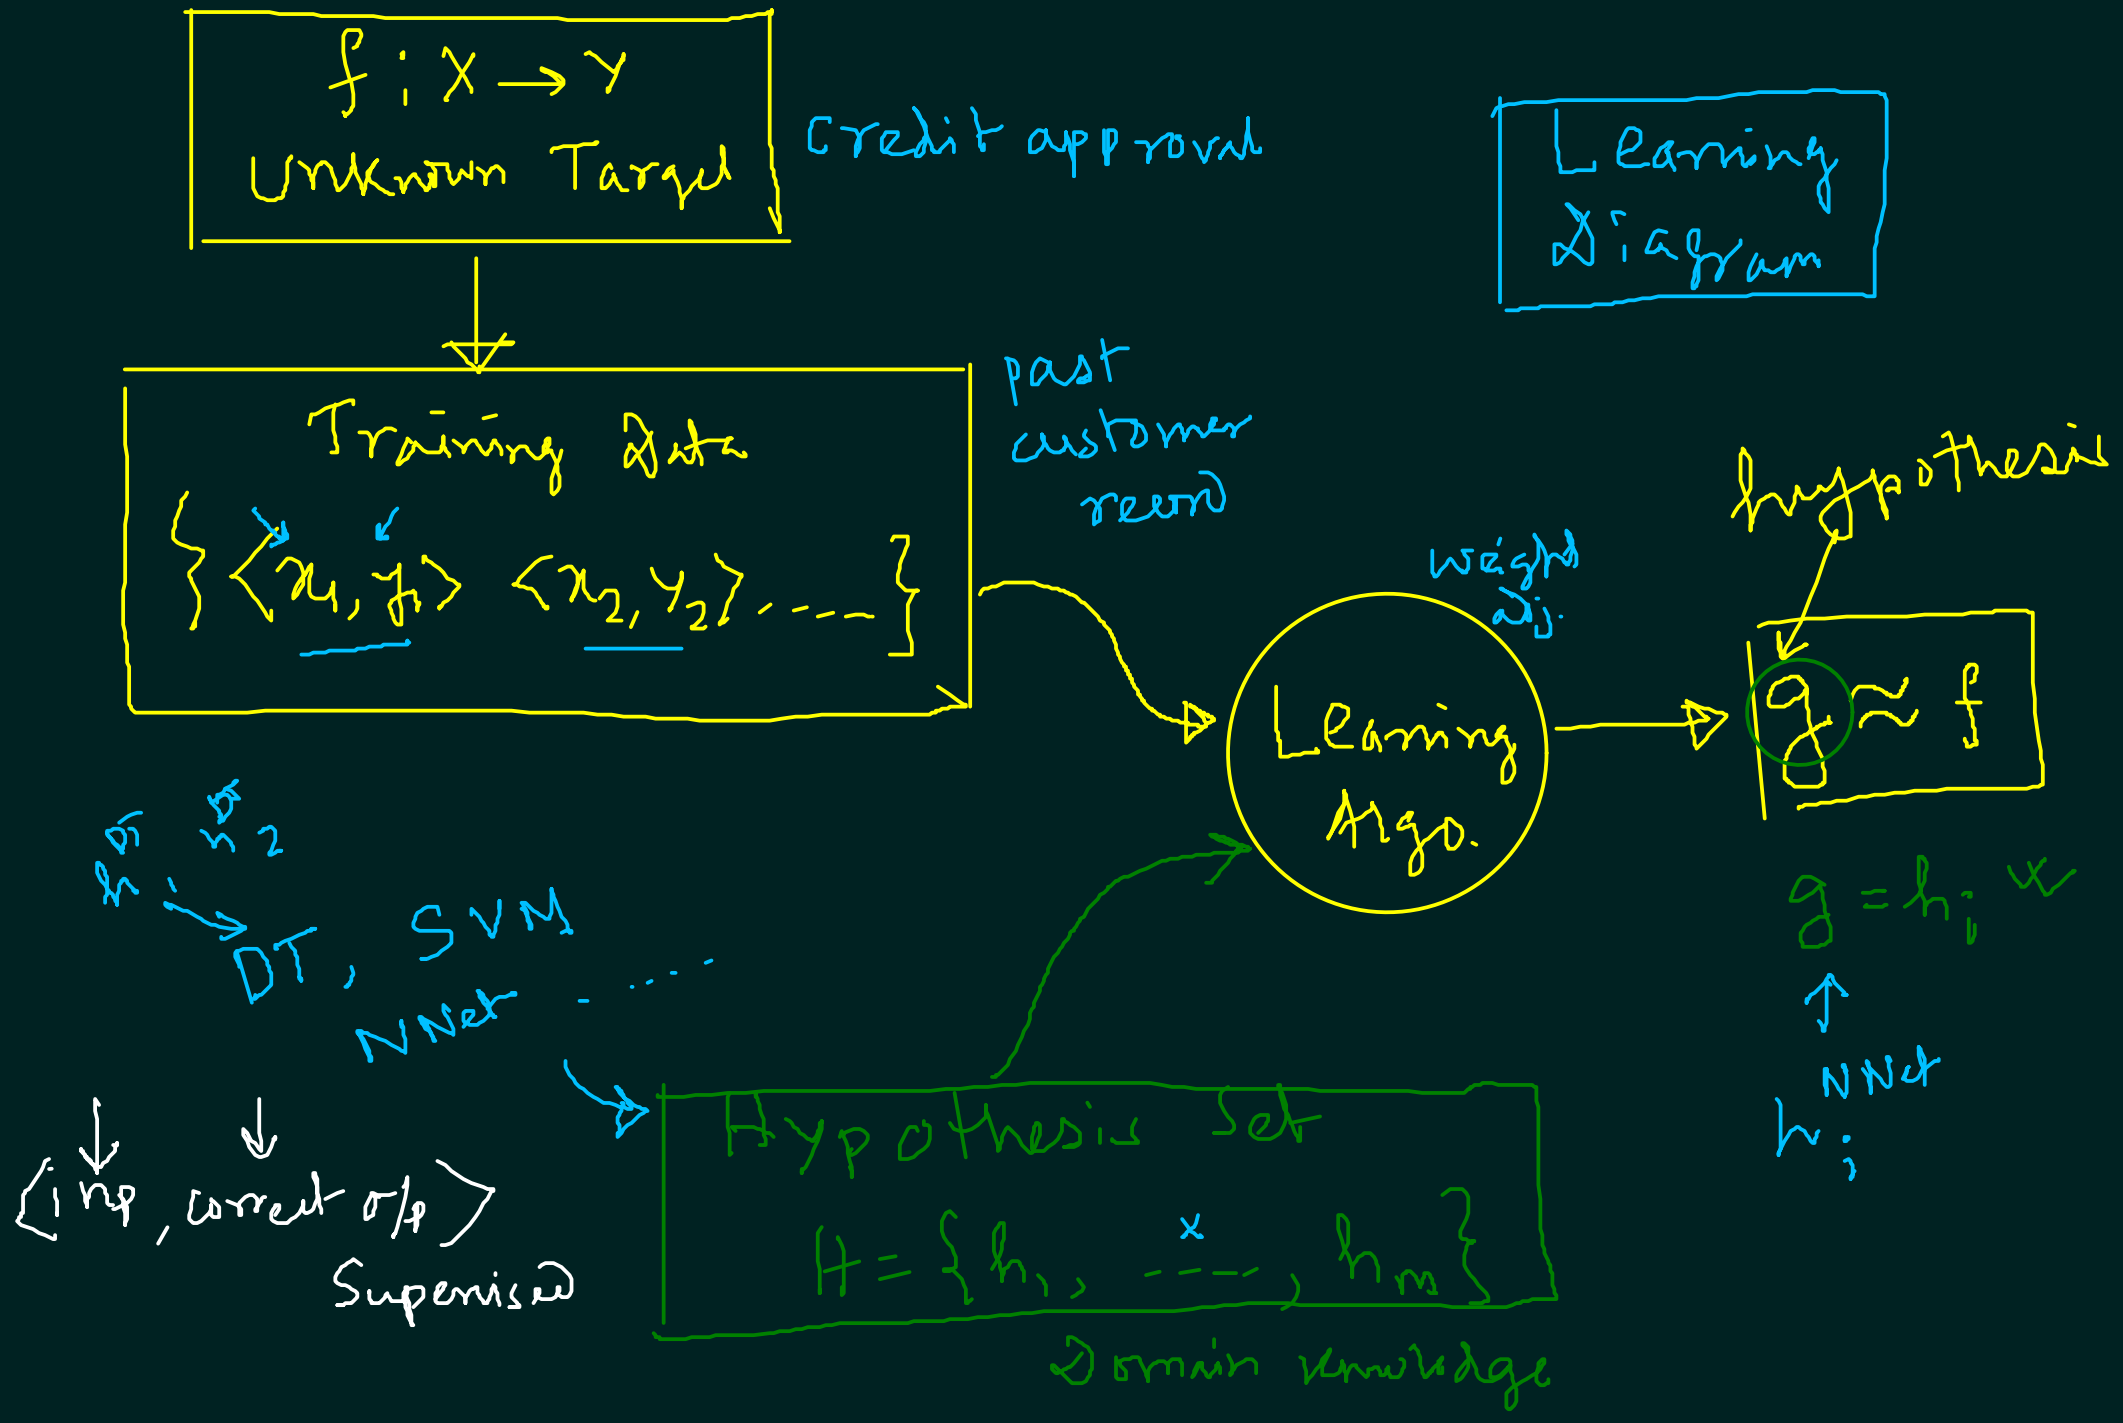 f : X → Y
Unknown Target
Credit approval
Learning
Diagram
Training Data
{ <x1, y1> <x2, y2> ..... }
past
customer
record
weight
adj.
Learning
Algo.
hypothesis
g ≈ f
g = hi
NNet
hi
DT
h1
DT
h2
DT, SVM
NNet - ....
<inp, correct o/p>
Supervised
Hypothesis Set
x
H = {h1, ----, hm}
Domain knowledge